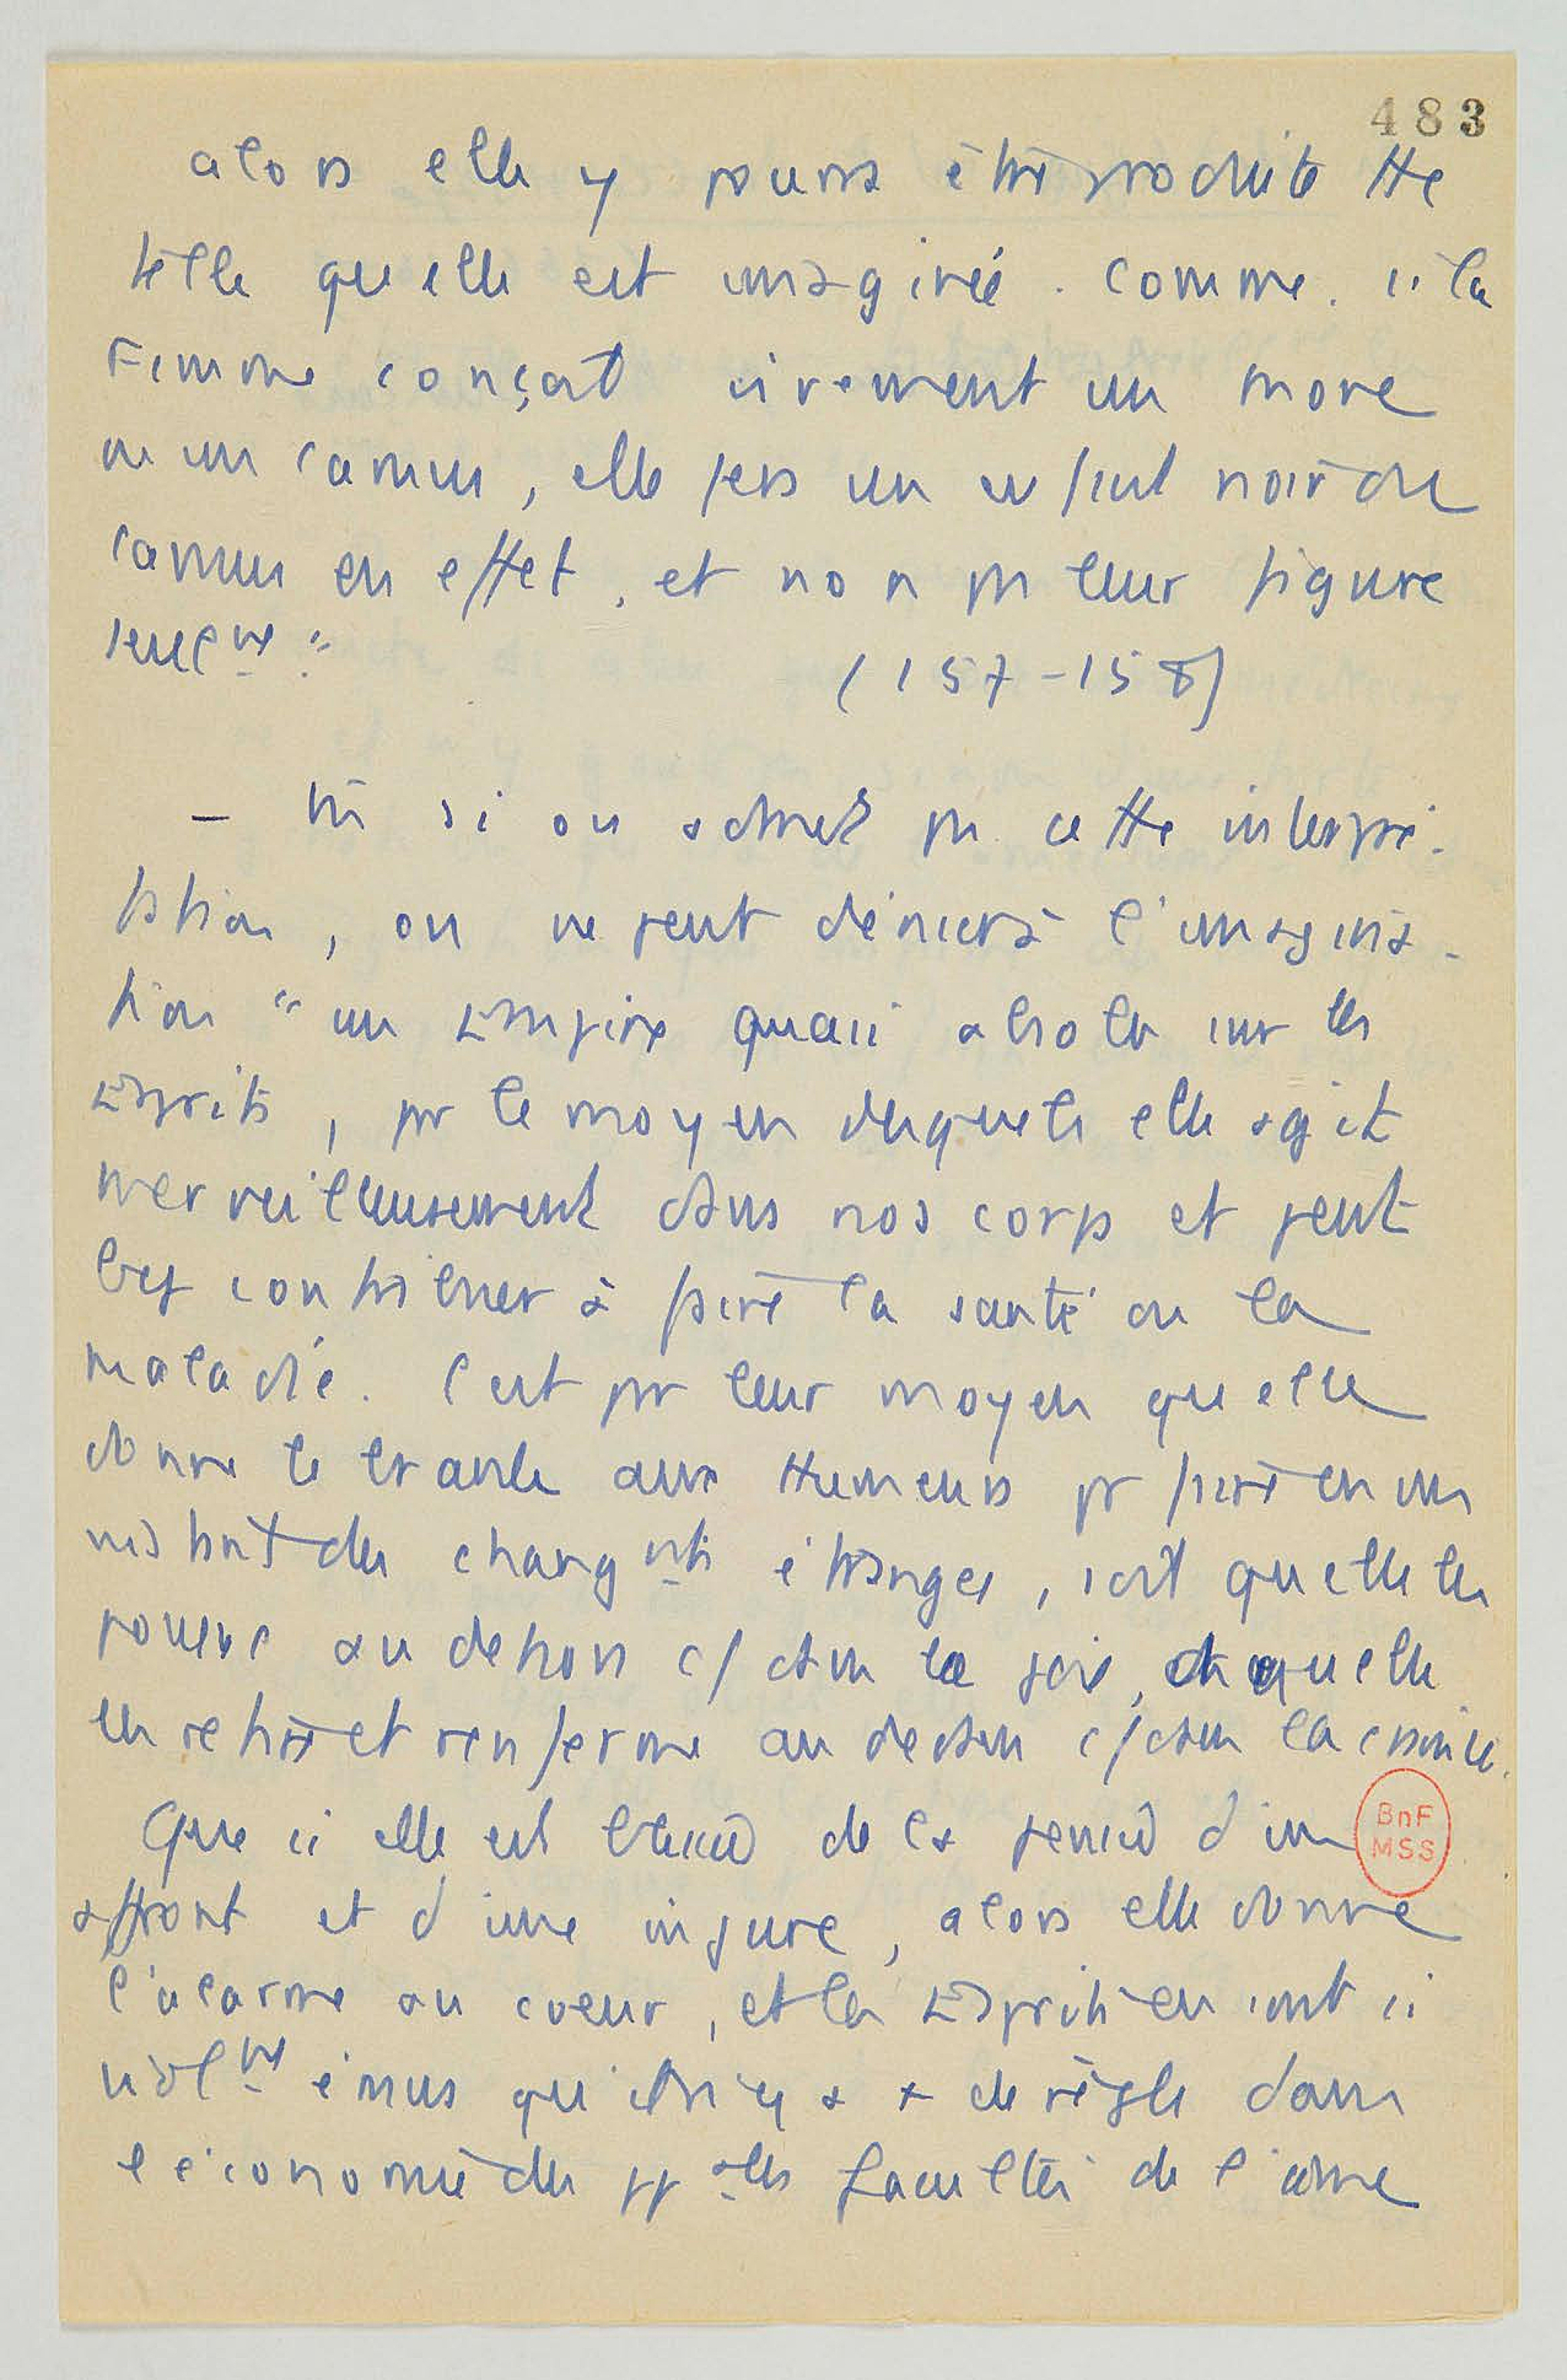 483
alors elle y pourra être produite tte
telle qu elle est imaginée. Comme. si la
Femme conçoit vivement un more
ou un camus, elle fera un enfant noir ou
camus en effet, et non pas leur figure
seulmt "
(157-158)
– Mm si on admet pas cette interpré-
tation, on ne peut dénier à l'imagina-
tion " un Empire quasi absolu sur les
Esprits, par le moyen desquels elle agit
merveilleusement dans nos corps et peut
bcp contribuer à faire la santé ou la
maladie. C'est par leur moyen qu elle
donne le branle aux Humeurs pr faire en un
instant des changnts étranges, soit qu elle les
pousse au dehors c/ dans la joie, ou qu elle
les retire et renferme au dedans c/ dans la crainte.
Que si elle est blessée de la pensée d'un
affront et d'une injure, alors elle donne
l'alarme au coeur, et les Esprits en sont si
violmt émus qu'il n'y a + de règle dans
l'économie des ppales facultés de l'âme
BnF
MSS